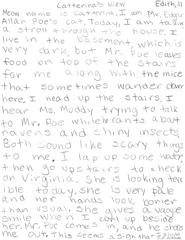 Catterina's View Edith, 11
Meow name is Catterina, I am Mr. Edgar
Allan Poe's cat. Today, I am taking
a stroll through the house. I
live in the basement, which is
very dark, but Mr. Poe leaves
food on top of the stairs
for me along with the mice
that sometimes wander down
here. I head up the stairs. I
hear Ms. Muddy trying to talk
to Mr. Poe while he rants about
ravens and shiny insects.
Both sound like scary things
to me. I lap up some water,
then go upstairs to check
on Virginia. She is looking terr
ible today, she is very pale
and her hands look bonier
than usual. She gives a vague
smile when I curl up beside
her. Mr. Poe comes in, and he shoos
me out. This seems a sign that